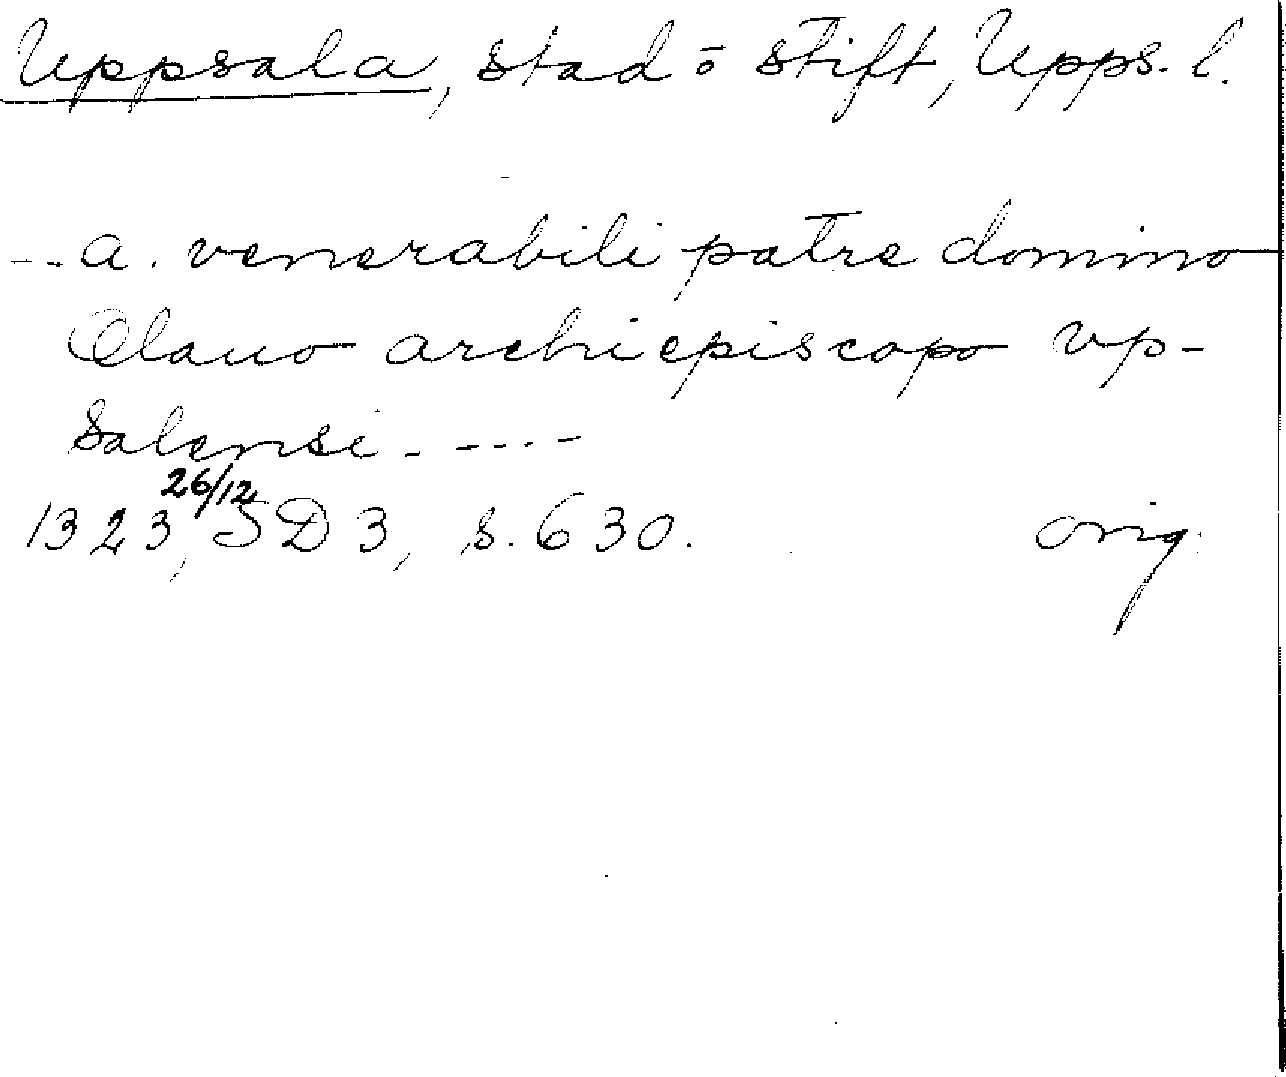 Uppsala, stad o stift, Upps. l.
--. a. venerabili patre domino
Olauo archiepiscopo vp-
salensi. ----
26/12
1323, SD 3, s. 630. orig.